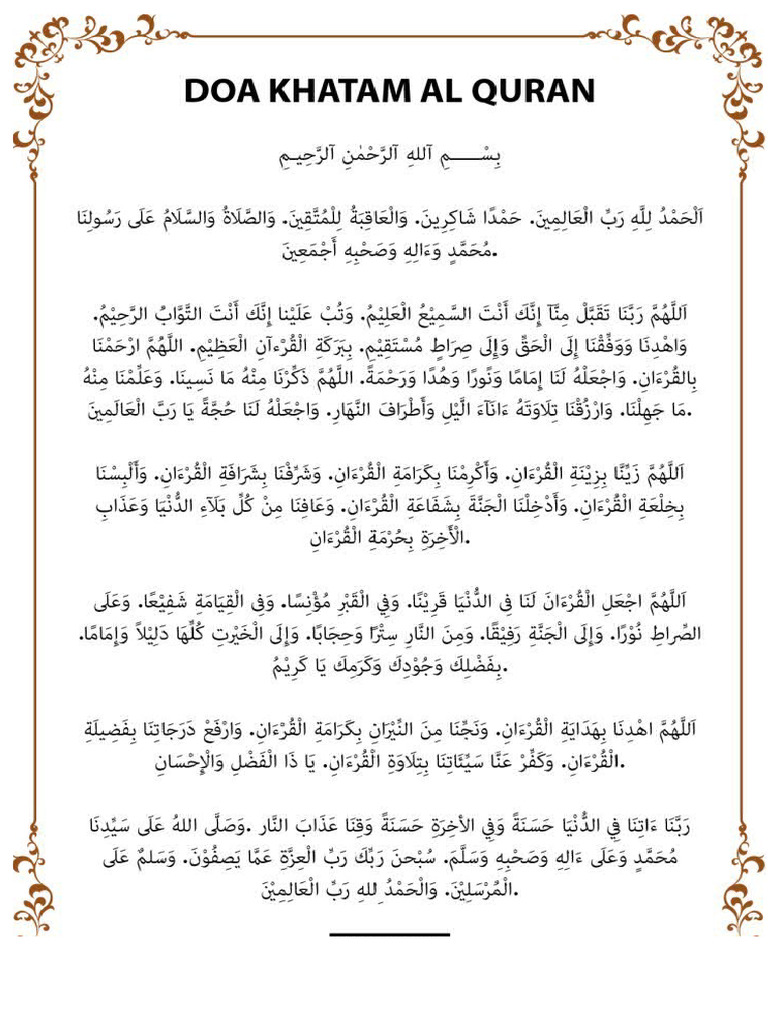 DOA KHATAM AL QURAN
بِسْـــــمِ اَللهِ اَلرَّحْمٰنِ اَلرَّحِيـمِ
اَلْحَمْدُ لِلَّهِ رَبِّ الْعَالِمِينَ. حَمْدًا شَاكِرِينَ. وَالْعَاقِبَةُ لِلْمُتَّقِينَ. وَالصَّلَاةُ وَالسَّلَامُ عَلَى رَسُولِنَا
مُحَمَّدٍ وَءَالِهِ وَصَحْبِهِ أَجْمَعِينَ.
اَللَّهُمَّ رَبَّنَا تَقَبَّلْ مِنَّآ إِنَّكَ أَنْتَ السَّمِيْعُ الْعَلِيْمُ. وَتُبْ عَلَيْنا إِنَّكَ أَنْتَ التَّوَّابُ الرَّحِيْمُ.
وَاهْدِنَا وَوَفِّقْنَا إِلَى الْحَقِّ وَإِلَى صِرَاطٍ مُسْتَقِيْمٍ. بِبَرَكَةِ الْقُرْءآنِ الْعَظِيْمِ. اللَّهُمَّ ارْحَمْنَا
بِالقُرْءَانِ. وَاجْعَلْهُ لَنَا إِمَامًا وَنُورًا وَهُدًا وَرَحْمَةً. اللَّهُمَّ ذَكِّرْنَا مِنْهُ مَا نَسِينَا. وَعَلِّمْنَا مِنْهُ
مَا جَهِلْنَا. وَارْزُقْنَا تِلَاوَتَهُ ءَانَآءَ الَّيْلِ وَأَطْرَافَ النَّهَارِ. وَاجْعَلْهُ لَنَا حُجَّةً يَا رَبَّ الْعَالَمِينَ.
اَللَّهُمَّ زَيِّنَّا بِزِيْنَةِ القُرْءَانِ. وَأَكْرِمْنَا بِكَرَامَةِ الْقُرْءَانِ. وَشَرِّفْنَا بِشَرَافَةِ الْقُرْءَانِ. وَأَلْبِسْنَا
بِخِلْعَةِ الْقُرْءَانِ. وَأَدْخِلْنَا الْجَنَّةَ بِشَفَاعَةِ الْقُرْءَانِ. وَعَافِنَا مِنْ كُلِّ بَلَآءِ الدُّنْيَا وَعَذَابِ
الْأَخِرَةِ بِحُرْمَةِ الْقُرْءَانِ.
اَللَّهُمَّ اجْعَلِ الْقُرْءَانَ لَنَا فِي الدُّنْيَا قَرِيْنًا. وَفِي الْقَبْرِ مُؤْنِسًا. وَفِي الْقِيَامَةِ شَفِيْعًا. وَعَلَى
الصِّرَاطِ نُوْرًا. وَإِلَى الْجَنَّةِ رَفِيْقًا. وَمِنَ النَّارِ سِتْرًا وَحِجَابًا. وَإِلَى الْخَيْرٰتِ كُلِّهَا دَلِيْلاً وَإِمَامًا.
بِفَضْلِكَ وَجُوْدِكَ وَكَرَمِكَ يَا كَرِيْمُ.
اَللَّهُمَّ اهْدِنَا بِهَدَايَةِ الْقُرْءَانِ. وَنَجِّنَا مِنَ النِّيْرَانِ بِكَرَامَةِ الْقُرْءَانِ. وَارْفَعْ دَرَجَاتِنَا بِفَضِيلَةِ
الْقُرْءَانِ. وَكَفِّرْ عَنَّا سَيِّئَاتِنَا بِتِلَاوَةِ الْقُرْءَانِ. يَا ذَا الْفَضْلِ وَالْإِحْسَانِ.
رَبَّنَا ءَاتِنَا فِي الدُّنْيَا حَسَنَةً وَفِي الأخِرَةِ حَسَنَةً وَقِنَا عَذَابَ النَّار. وَصَلَّى اللهُ عَلَى سَيِّدِنَا
مُحَمَّدٍ وَعَلَى ءَالِهِ وَصَحْبِهِ وَسَلَّمَ. سُبْحنَ رَبِّكَ رَبِّ الْعِزَّةِ عَمَّا يَصِفُوْنَ. وَسَلمٌ عَلَى
الْمُرْسَلِيْنَ. وَالْحَمْدُ لِلهِ رَبِّ الْعَالِمِيْنَ.